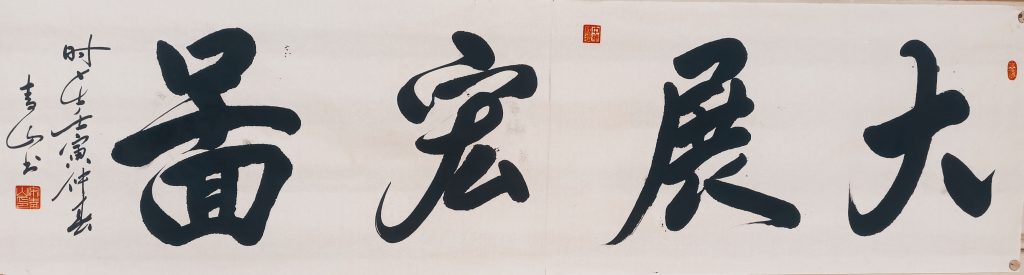 大展宏圖
时在壬寅仲春
青山书